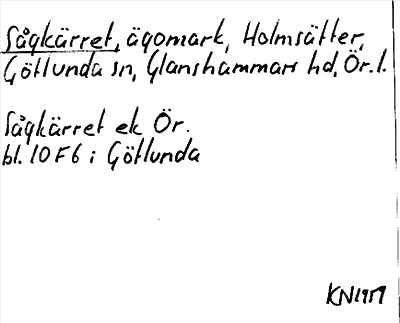 Sågkärret, ägomark, Holmsätter,
Götlunda sn, Glanshammars hd, Ör. l.
Sågkärret ek Ör.
bl. 10 F 6 i Götlunda